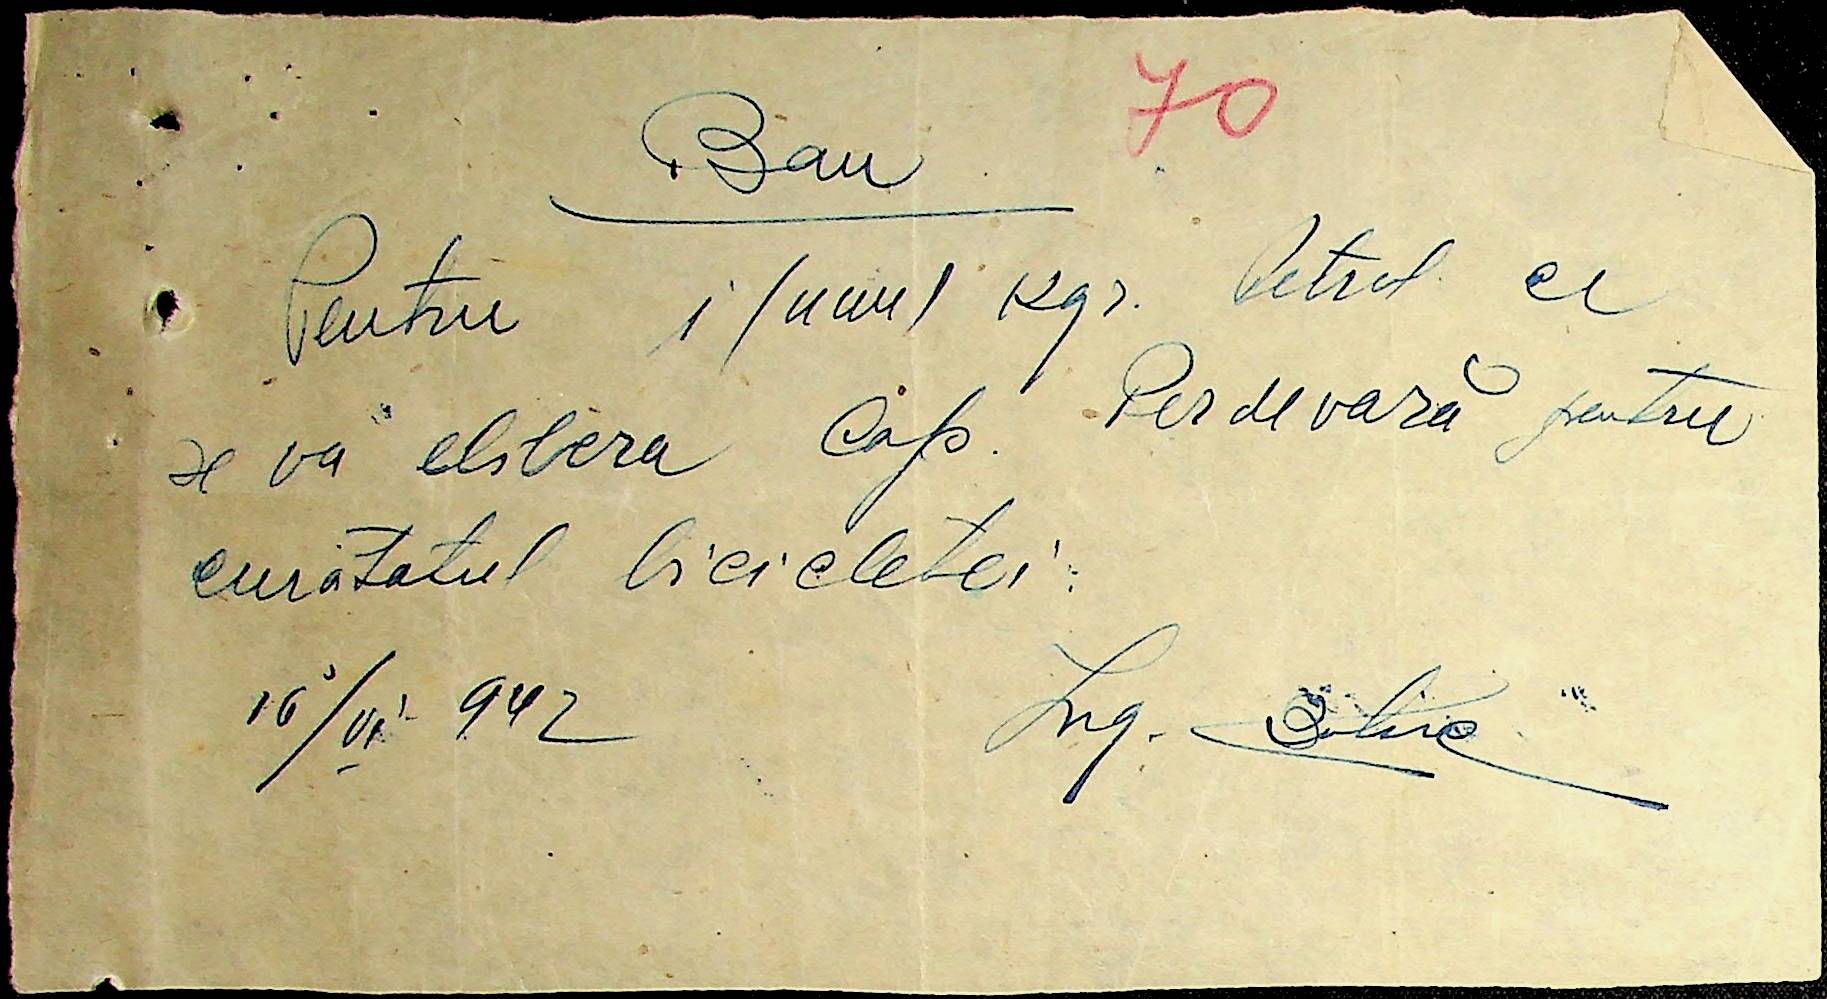 70
Bon
Pentru 1 (unu) Kgr. Petrol ce
se va elibera Cap. Perdevară pentru
curățatul bicicletei.
16/VI 942
Ing.